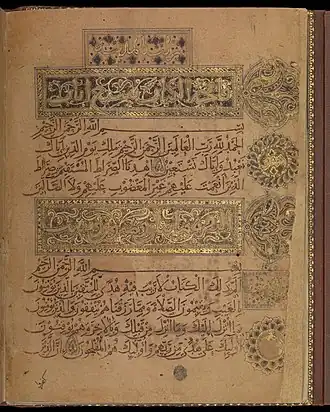 بسم الله الرحمن الرحيم
الحمد لله رب العالمين الرحمن الرحيم ملك يوم الدين اياك
نعبد واياك نستعين اهدنا الصراط المستقيم صراط
الذين انعمت عليهم غير المغضوب عليهم ولا الضالين
بسم الله الرحمن الرحيم
الم ذلك الكتاب لا ريب فيه هدى للمتقين الذين يؤمنون
بالغيب ويقيمون الصلوة ومما رزقناهم ينفقون والذين يؤمنون
بما انزل اليك وما انزل من قبلك وبالاخرة هم يوقنون
اولئك على هدى من ربهم واولئك هم المفلحون ان الذين